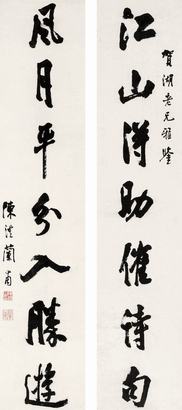 江山得助催诗句
賀湖老兄雅鑒
風月平分入勝遊
陳澧蘭甫